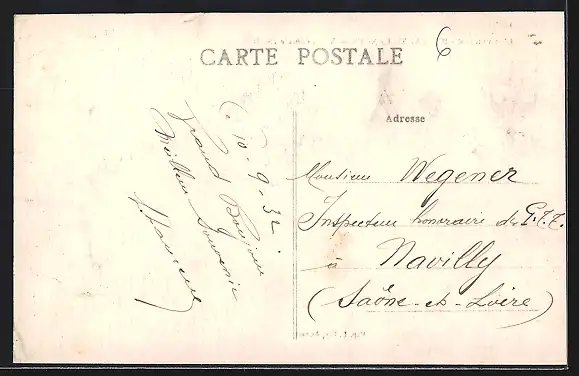 CARTE POSTALE
6
Adresse
10.9.32
Grand Bonjour
Meilleur Souvenir
Monsieur Wegener
Inspecteur honoraire des P.T.T.
à Navilly
(Saône-et-Loire)